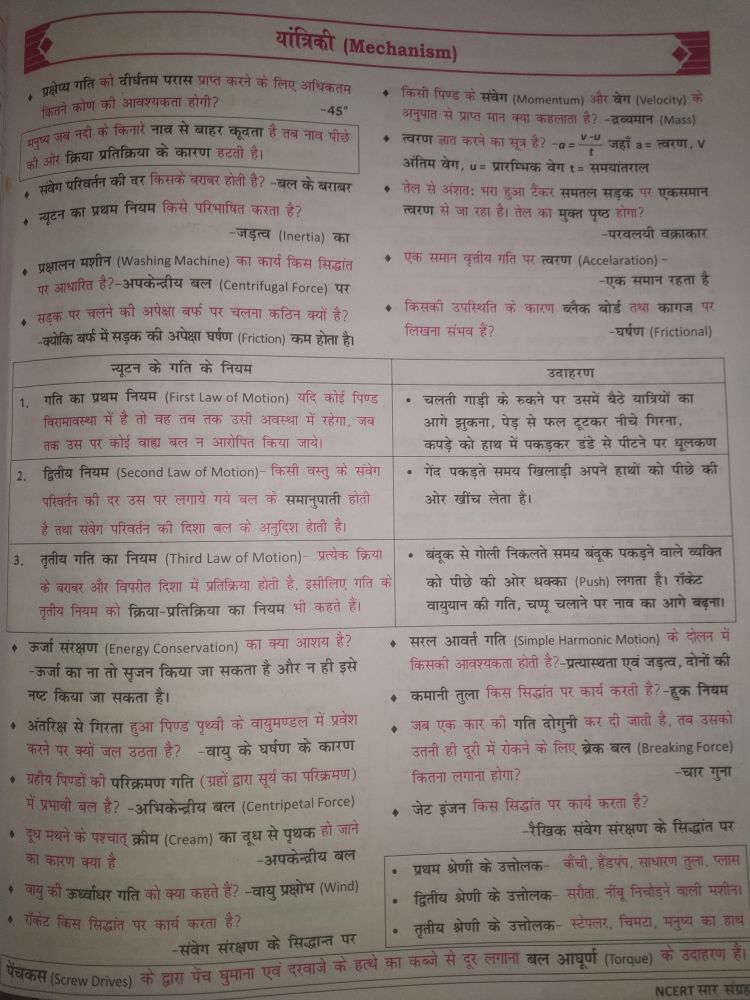 यांत्रिकी (Mechanism)
♦ प्रक्षेप्य गति को दीर्घतम परास प्राप्त करने के लिए अधिकतम
कितने कोण की आवश्यकता होगी? -45°
मनुष्य जब नदी के किनारे नाव से बाहर कूदता है तब नाव पीछे
की ओर क्रिया प्रतिक्रिया के कारण हटती है।
♦ संवेग परिवर्तन की दर किसके बराबर होती है? -बल के बराबर
♦ न्यूटन का प्रथम नियम किसे परिभाषित करता है?
-जड़त्व (Inertia) का
♦ प्रक्षालन मशीन (Washing Machine) का कार्य किस सिद्धांत
पर आधारित है?-अपकेन्द्रीय बल (Centrifugal Force) पर
♦ सड़क पर चलने की अपेक्षा बर्फ पर चलना कठिन क्यों है?
-क्योकि बर्फ में सड़क की अपेक्षा घर्षण (Friction) कम होता है।
♦ किसी पिण्ड के संवेग (Momentum) और वेग (Velocity) के
अनुपात से प्राप्त मान क्या कहलाता है? -द्रव्यमान (Mass)
♦ त्वरण ज्ञात करने का सूत्र है? -a = v-u/t जहाँ a = त्वरण, V
अंतिम वेग, u = प्रारम्भिक वेग t = समयांतराल
♦ तेल से अंशतः भरा हुआ टैंकर समतल सड़क पर एकसमान
त्वरण से जा रहा है। तेल का मुक्त पृष्ठ होगा?
-परवलयी वक्राकार
♦ एक समान वृत्तीय गति पर त्वरण (Accelaration) –
-एक समान रहता है
♦ किसकी उपस्थिति के कारण ब्लैक बोर्ड तथा कागज पर
लिखना संभव हैं? -घर्षण (Frictional)
न्यूटन के गति के नियम
उदाहरण
1. गति का प्रथम नियम (First Law of Motion) यदि कोई पिण्ड
विरामावस्था में है तो वह तब तक उसी अवस्था में रहेगा, जब
तक उस पर कोई वाह्य बल न आरोपित किया जाये।
• चलती गाड़ी के रुकने पर उसमें बैठे यात्रियों का
आगे झुकना, पेड़ से फल टूटकर नीचे गिरना,
कपड़े को हाथ में पकड़कर डंडे से पीटने पर धूलकण
2. द्वितीय नियम (Second Law of Motion)– किसी वस्तु के संवेग
परिवर्तन की दर उस पर लगाये गये बल के समानुपाती होती
है तथा संवेग परिवर्तन की दिशा बल के अनुदिश होती है।
• गेंद पकड़ते समय खिलाड़ी अपने हाथों को पीछे की
ओर खींच लेता है।
3. तृतीय गति का नियम (Third Law of Motion)– प्रत्येक क्रिया
के बराबर और विपरीत दिशा में प्रतिक्रिया होती है, इसीलिए गति के
तृतीय नियम को क्रिया-प्रतिक्रिया का नियम भी कहते हैं।
• बंदूक से गोली निकलते समय बंदूक पकड़ने वाले व्यक्ति
को पीछे की ओर धक्का (Push) लगता है। रॉकेट
वायुयान की गति, चप्पू चलाने पर नाव का आगे बढ़ना।
♦ ऊर्जा संरक्षण (Energy Conservation) का क्या आशय है?
-ऊर्जा का ना तो सृजन किया जा सकता है और न ही इसे
नष्ट किया जा सकता है।
♦ अंतरिक्ष से गिरता हुआ पिण्ड पृथ्वी के वायुमण्डल में प्रवेश
करने पर क्यों जल उठता है? -वायु के घर्षण के कारण
♦ ग्रहीय पिण्डों की परिक्रमण गति (ग्रहों द्वारा सूर्य का परिक्रमण)
में प्रभावी बल है? -अभिकेन्द्रीय बल (Centripetal Force)
♦ दूध मथने के पश्चात् क्रीम (Cream) का दूध से पृथक हो जाने
का कारण क्या है -अपकेन्द्रीय बल
♦ वायु की ऊर्ध्वाधर गति को क्या कहते हैं? -वायु प्रक्षोभ (Wind)
♦ रॉकेट किस सिद्धांत पर कार्य करता है?
-संवेग संरक्षण के सिद्धान्त पर
♦ सरल आवर्त गति (Simple Harmonic Motion) के दोलन में
किसकी आवश्यकता होती है?-प्रत्यास्थता एवं जड़त्व, दोनों की
♦ कमानी तुला किस सिद्धांत पर कार्य करती है? -हुक नियम
♦ जब एक कार की गति दोगुनी कर दी जाती है, तब उसको
उतनी ही दूरी में रोकने के लिए ब्रेक बल (Breaking Force)
कितना लगाना होगा? -चार गुना
♦ जेट इंजन किस सिद्धांत पर कार्य करता है?
-रैखिक संवेग संरक्षण के सिद्धांत पर
• प्रथम श्रेणी के उत्तोलक– कैंची, हैंडपंप, साधारण तुला, प्लास
• द्वितीय श्रेणी के उत्तोलक– सरौता, नींबू निचोड़ने वाली मशीन।
• तृतीय श्रेणी के उत्तोलक– स्टेपलर, चिमटा, मनुष्य का हाथ
पेंचकस (Screw Drives) के द्वारा पेंच घुमाना एवं दरवाजे के हत्थे का कब्जे से दूर लगाना बल आघूर्ण (Torque) के उदाहरण हैं।
NCERT सार संग्रह